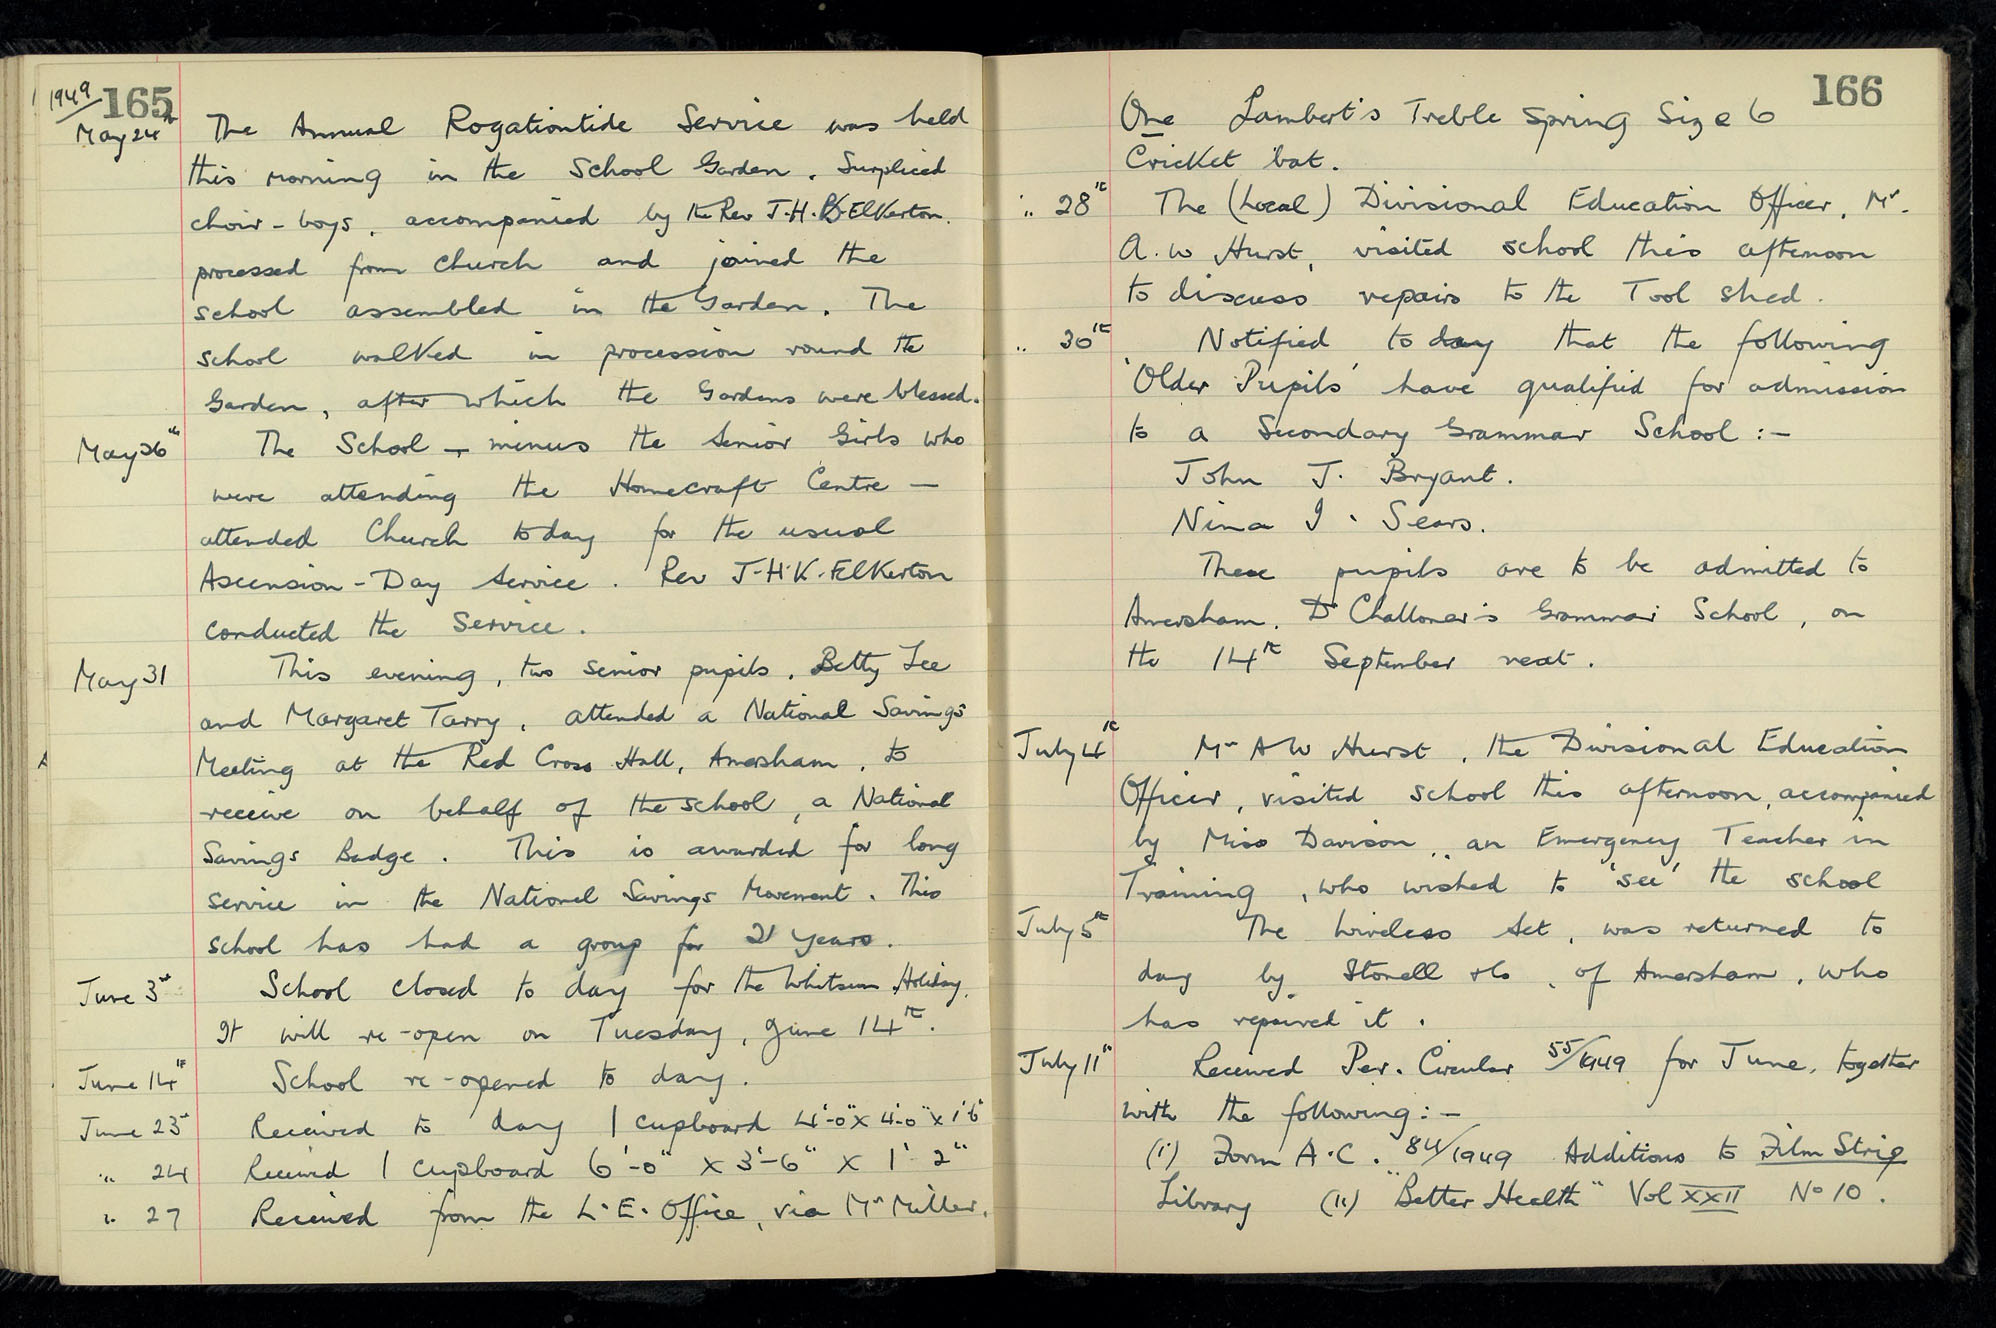 1949 165
May 24th The Annual Rogationtide Service was held
this morning in the School Garden. Surpliced
choir-boys, accompanied by the Rev J.H.K. Elkerton.
processed from Church and joined the
school assembled in the Garden. The
school walked in procession round the
Garden, after which the Gardens were blessed.
May 26th The School — minus the Senior Girls who
were attending the Homecraft Centre —
attended Church today for the usual
Ascension-Day Service. Rev J.H.K. Elkerton
conducted the Service.
May 31 This evening, two senior pupils, Betty Lee
and Margaret Tarry, attended a National Savings
Meeting at the Red Cross Hall, Amersham, to
receive on behalf of the school, a National
Savings Badge. This is awarded for long
service in the National Savings Movement. This
school has had a group for 21 years.
June 3rd School closed to day for the Whitsun Holiday.
It will re-open on Tuesday, June 14th.
June 14th School re-opened to day.
June 23rd Received to day 1 cupboard 4'-0" x 4'-0" x 1'6"
" 24 Received 1 cupboard 6'-0" x 3'-6" x 1' 2"
" 27 Received from the L.E. Office, via Mr Miller,
166
One Lambert's Treble Spring Size 6
Cricket bat.
" 28th The (Local) Divisional Education Officer, Mr.
A.W Hurst, visited school this afternoon
to discuss repairs to the Tool shed.
" 30th Notified to day that the following
'Older Pupils' have qualified for admission
to a Secondary Grammar School :-
John J. Bryant.
Nina I. Sears.
These pupils are to be admitted to
Amersham. Dr Challoner's Grammar School, on
the 14th September next.
July 4th Mr A W Hurst, the Divisional Education
Officer, visited school this afternoon, accompanied
by Miss Davison, an Emergency Teacher in
Training, who wished to 'see' the school
July 5th The Wireless Set, was returned to
day by Stonell & Co, of Amersham, who
has repaired it.
July 11th Received Per. Circular 55/1949 for June, together
with the following :-
(i) Form A.C. 84/1949 Additions to Film Strip
Library (ii) "Better Health" Vol XXII No 10.